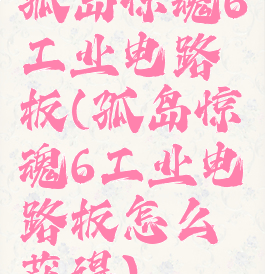 孤岛惊魂6
工业电路
板(孤岛惊
魂6工业电
路板怎么
获得)